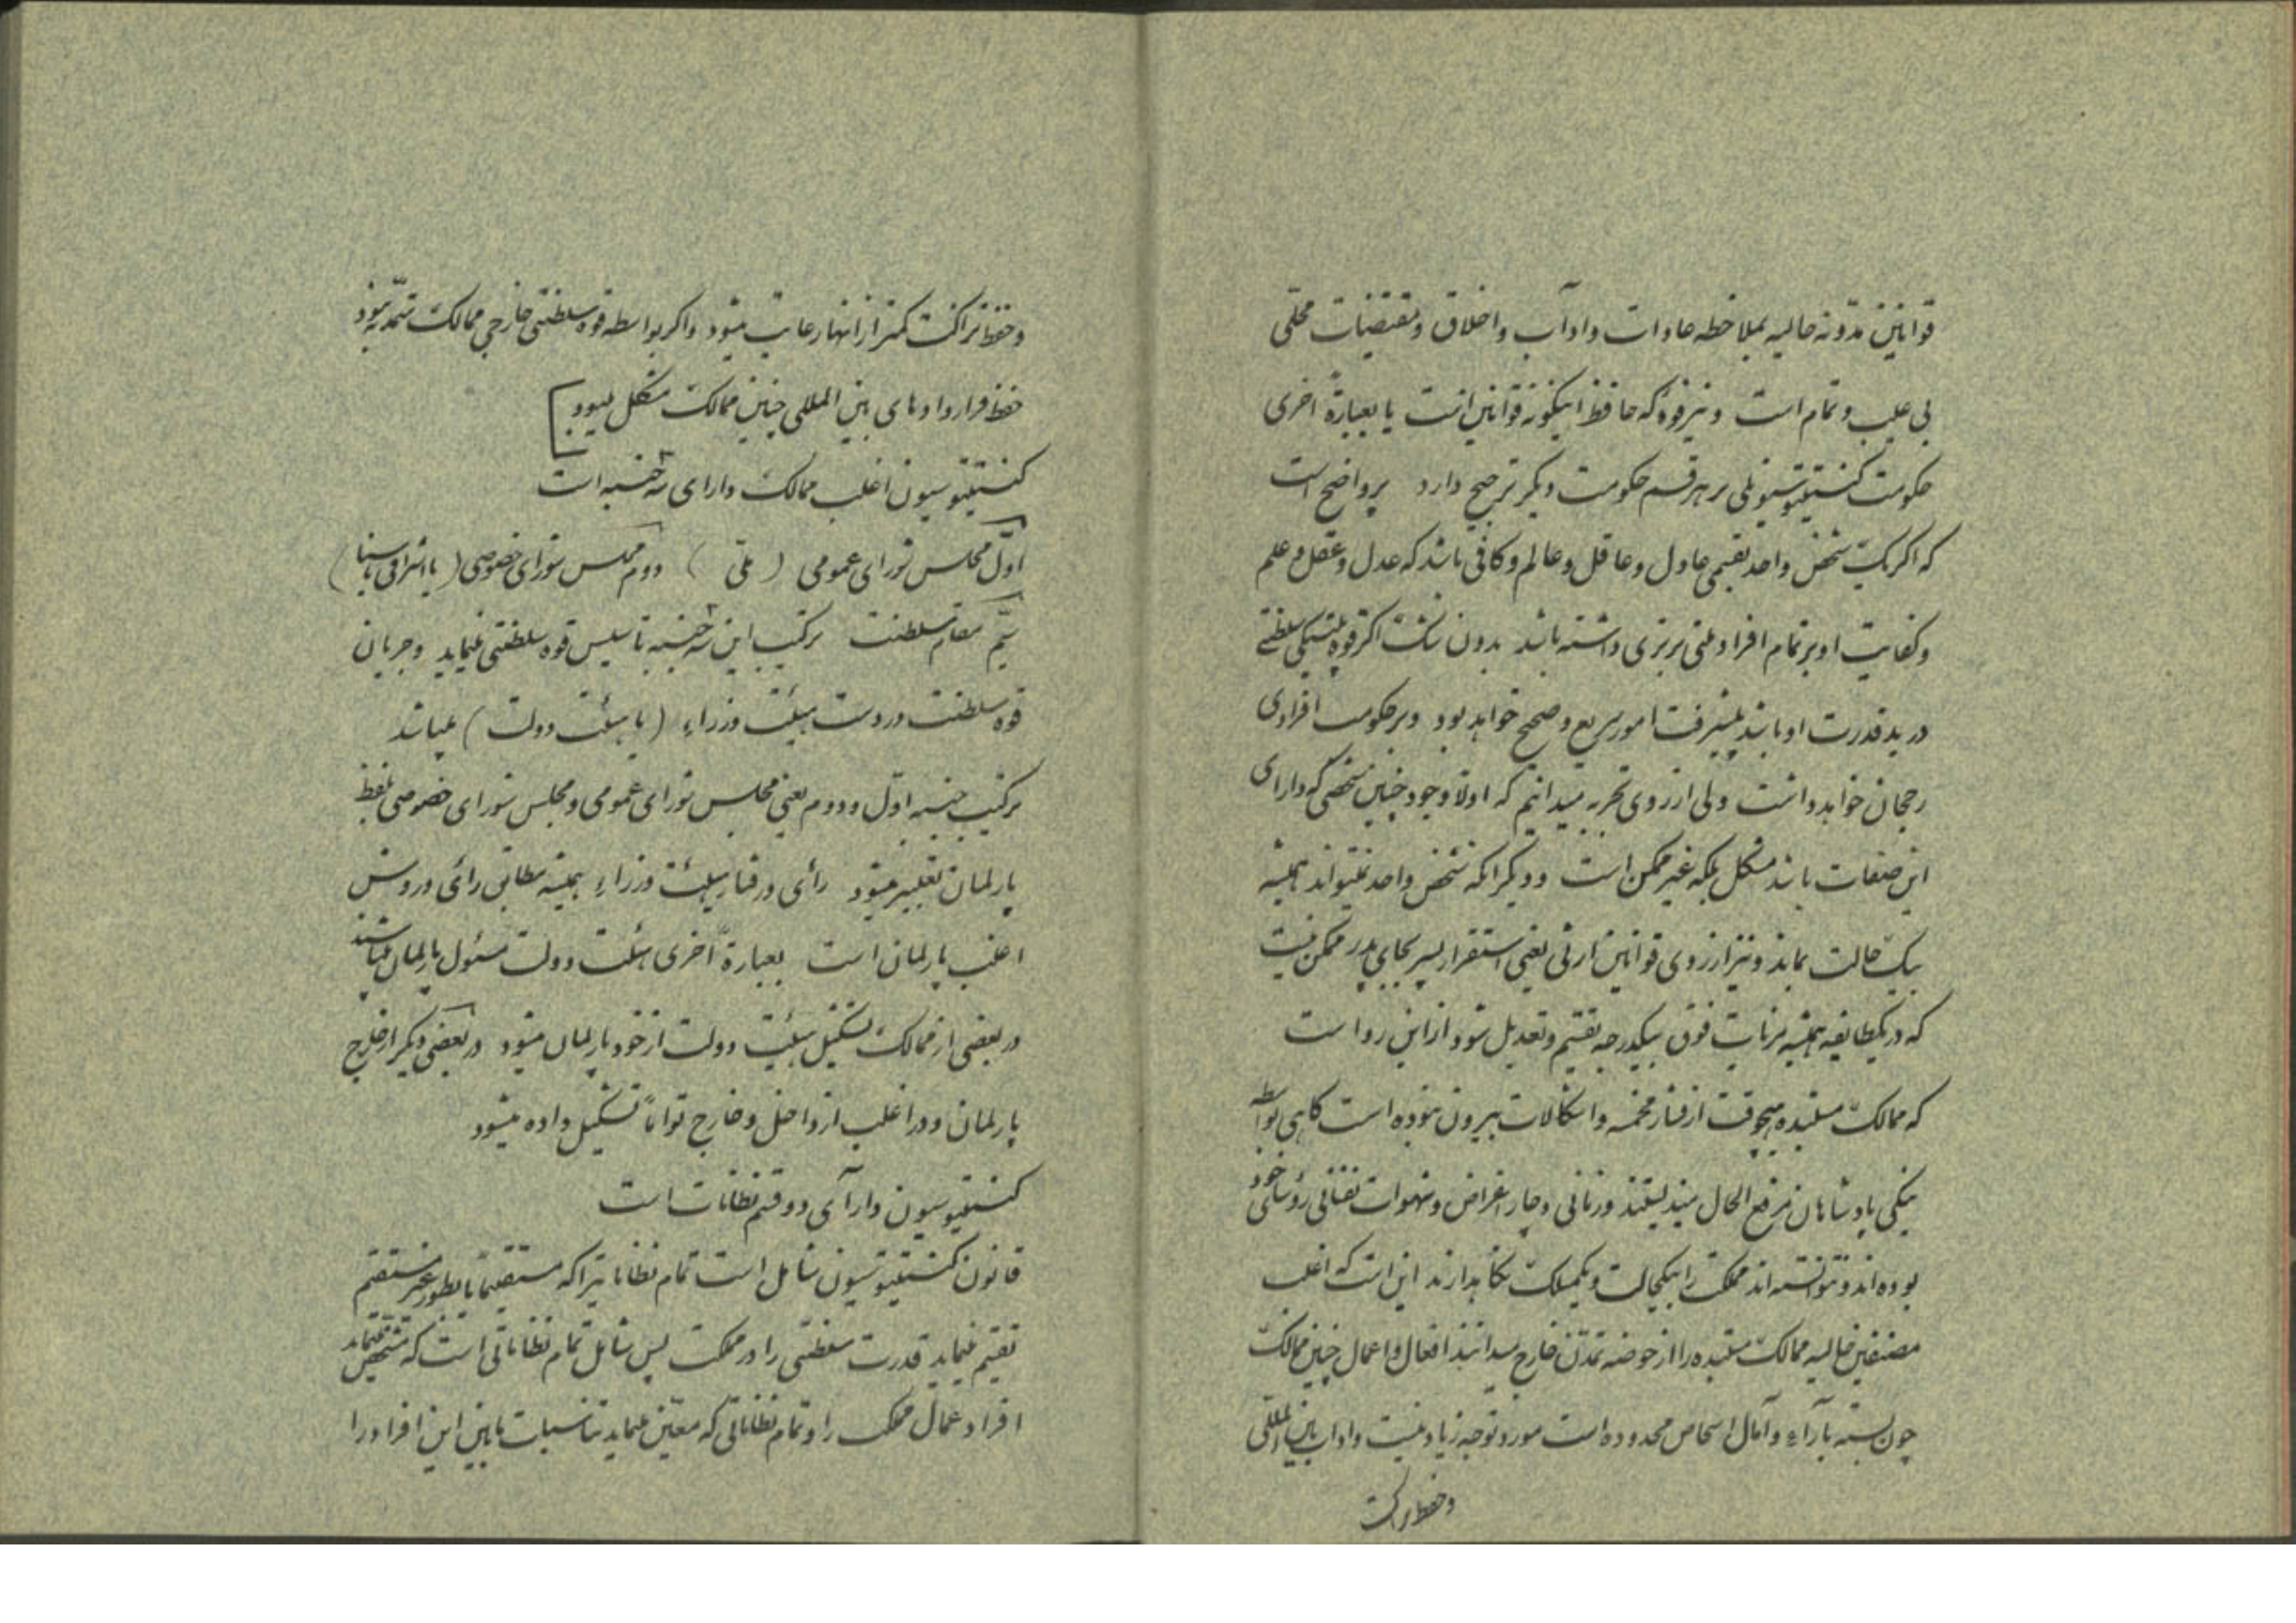 قوانین مدونه حالیه بملاحظه عادات و اداب و اخلاق و مقتضیات محلّی
بی عیب و تمام است و نیز قوه که حافظ اینگونه قوانین است یا بعبارة اخری
حکومت کنستیتیوسیونلی بر هر قسم حکومت دیگر ترجیح دارد پر واضح است
که اگر یک شخص واحد بقسمی عادل و عاقل و عالم و کافی باشد که عدل و عقل و علم
و کفایت او بر تمام افراد ملتی برتری داشته باشد بدون شک اگر قوه سلطنتی
در ید قدرت او باشد پیشرفت امور سریع و صحیح خواهد بود و بر حکومت افرادی
رجحان خواهد داشت ولی از روی تجربه میدانیم که اولا وجود چنین شخصی که دارای
این صفات باشد مشکل بلکه غیر ممکن است و دیگر اکه شخص واحد نمیتواند همیشه
بیک حالت بماند و نیز از روی قوانین ارثی یعنی استقرار پسر بجای پدر ممکن نیست
که در یکطایفه همیشه مزیات فوق بیکدرجه تقسیم و تعدیل شود از این رو است
که ممالک مستبده هیچوقت از فشار مخمصه و اشکالات بیرون نبوده است گاهی بواسطه
نیکی پادشاهان مرفع الحال میزیستند و زمانی دچار اغراض و شهوات نفسانی رؤسای خود
بوده اند و نتوانسته اند مملکت را بیکحالت و یکمسلک نگاهدارند این است که اغلب
مصنفین حالیه ممالک مستبده را از حوضه تمدّن خارج میدانند افعال و اعمال چنین ممالک
چون بسته بآراء و آمال اشخاص محدوده است مورد توجه زیاد نیست و اداب بین المللی
و حفظ نزاکت
و حفظ نزاکت کمتر از انها رعایت میشود و اگر بواسطه قوه سلطنتی خارجی ممالک متمدنه نبود
حفظ قراردادهای بین المللی چنین ممالک مشکل میبود
کنستیتیوسیون اغلب ممالک دارای سه جنبه است
اوّل مجلس شورای عمومی (ملّی) دوم مجلس شورای خصوصی (یا اشرافی یا سنا)
سیّم مقام سلطنت ترکیب این سه جنبه تاسیس قوه سلطنتی مینماید و جریان
قوه سلطنت در دست هیئت وزراء (یا هیئت دولت) میباشد
ترکیب جنبه اوّل و دوم یعنی مجلس شورای عمومی و مجلس شورای خصوصی بلفظ
پارلمان تعبیر میشود رأی و رفتار هیئت وزراء همیشه مطابق رأی و روش
اغلب پارلمان است بعبارة اخری هیئت دولت مسئول پارلمان میباشند
در بعضی از ممالک تشکیل هیئت دولت از خود پارلمان میشود در بعضی دیگر از خارج
پارلمان و در اغلب از داخل و خارج تواماً تشکیل داده میشود
کنستیتیوسیون دارای دو قسم نظامات است
قانون کنستیتیوسیون شامل است تمام نظاماتیرا که مستقیماً یا بطور غیر مستقیم
تقسیم مینماید قدرت سلطنتی را در مملکت پس شامل تمام نظاماتی است که مشخص مینماید
افراد عمال مملکت را و تمام نظاماتی که معیّن مینماید تناسبات مابین این افراد را